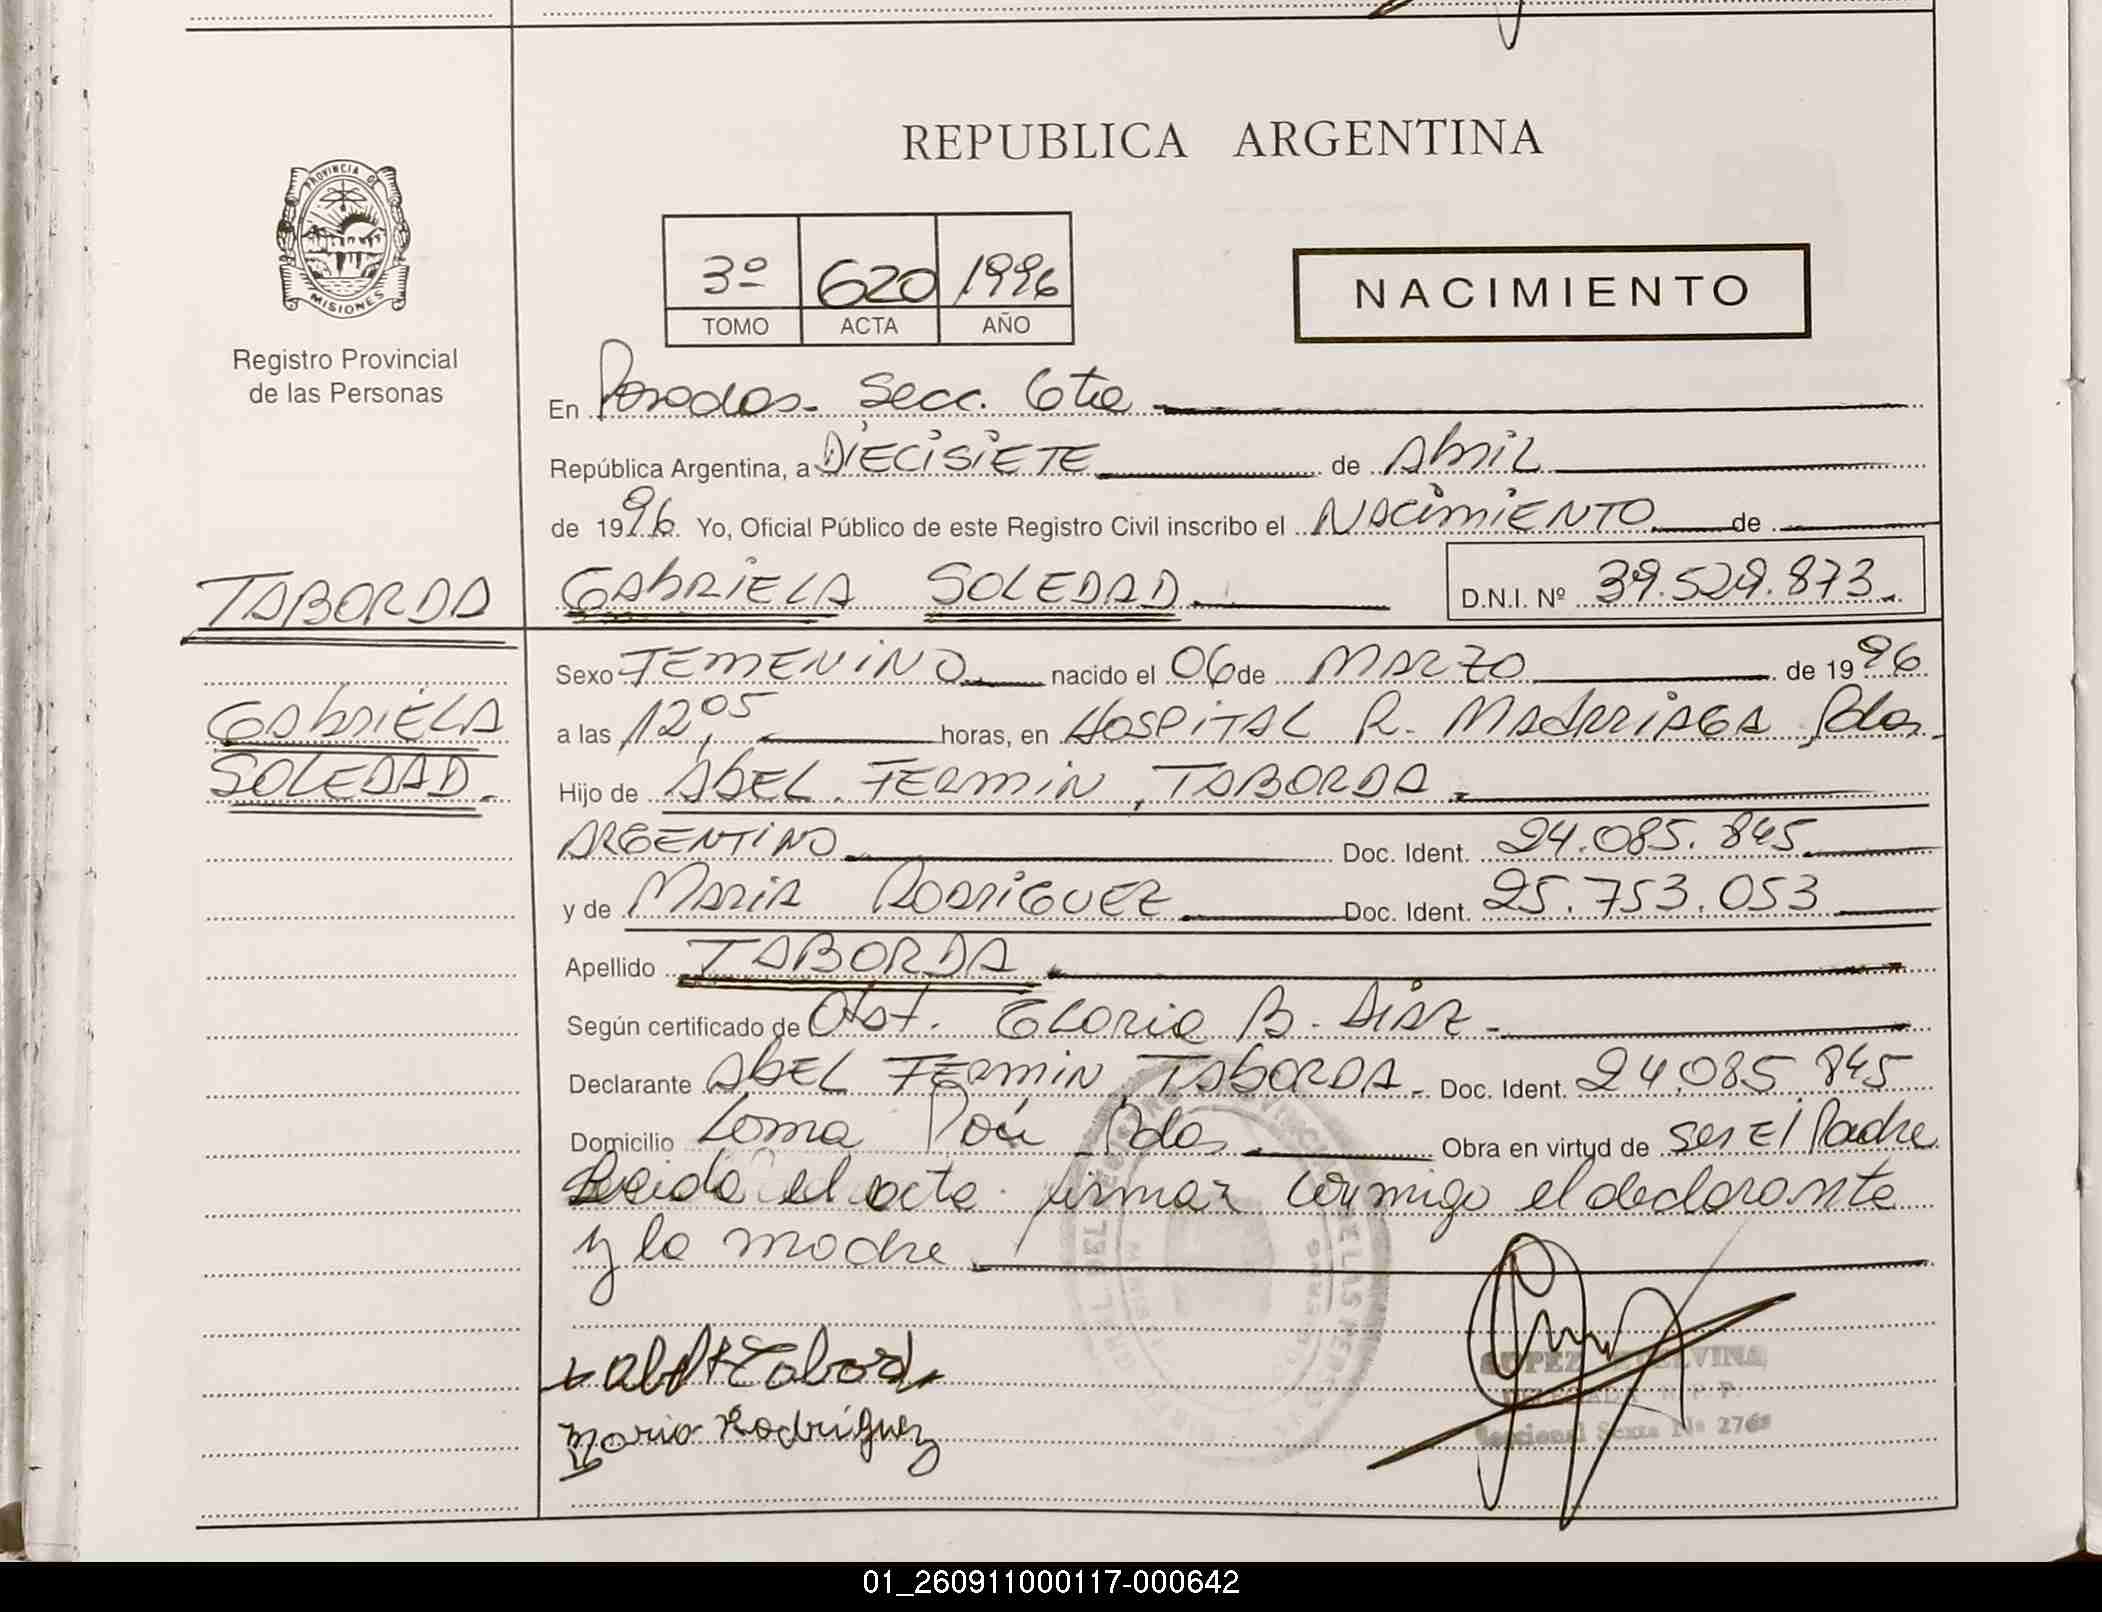 REPUBLICA ARGENTINA
PROVINCIA DE
MISIONES
Registro Provincial
de las Personas
3º 620 1996
TOMO ACTA AÑO
NACIMIENTO
En Posadas. Secc. 6ta
República Argentina, a DIECISIETE de Abril
de 1996. Yo, Oficial Público de este Registro Civil inscribo el NACIMIENTO de
TABORDA GABRIELA SOLEDAD. D.N.I. Nº 39.529.873.
Sexo FEMENINO nacido el 06 de MARZO de 1996
GABRIELA a las 12,05 horas, en HOSPITAL R. MADARRIAGA Pdas.
SOLEDAD. Hijo de ABEL FERMIN, TABORDA.
ARGENTINO Doc. Ident. 24.085.845
y de MARIA RODRIGUEZ Doc. Ident. 25.753.053
Apellido TABORDA
Según certificado de Obst. GLORIA B. DIAZ.
Declarante ABEL FERMIN TABORDA. Doc. Ident. 24.085 845
Domicilio Loma Poí Pdas. Obra en virtud de ser El Padre
Leida el acta firman conmigo el declarante
y la madre
Abel F Taborda
Maria Rodriguez
DELEGADA R. P. P.
Seccional Sexta Nº 276
01_260911000117-000642